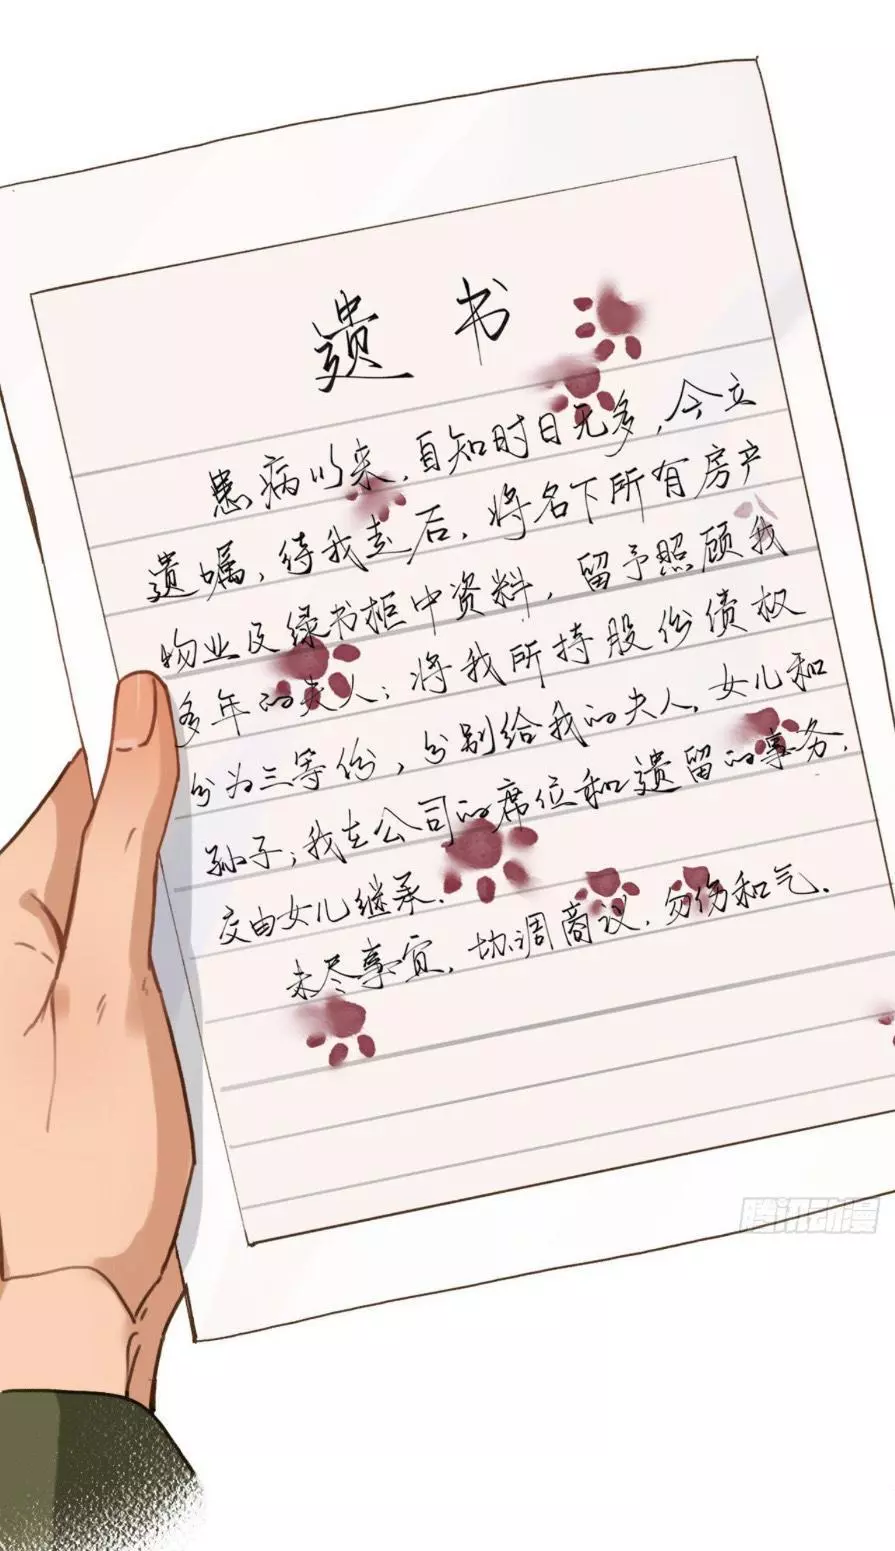 遗书
患病以来,自知时日无多,今立
遗嘱,待我走后,将名下所有房产
物业及绿书柜中资料,留予照顾我
多年的夫人;将我所持股份债权
分为三等份,分别给我的夫人,女儿和
孙子;我在公司的席位和遗留的事务,
交由女儿继承.
未尽事宜,协调商议,勿伤和气.
腾讯动漫